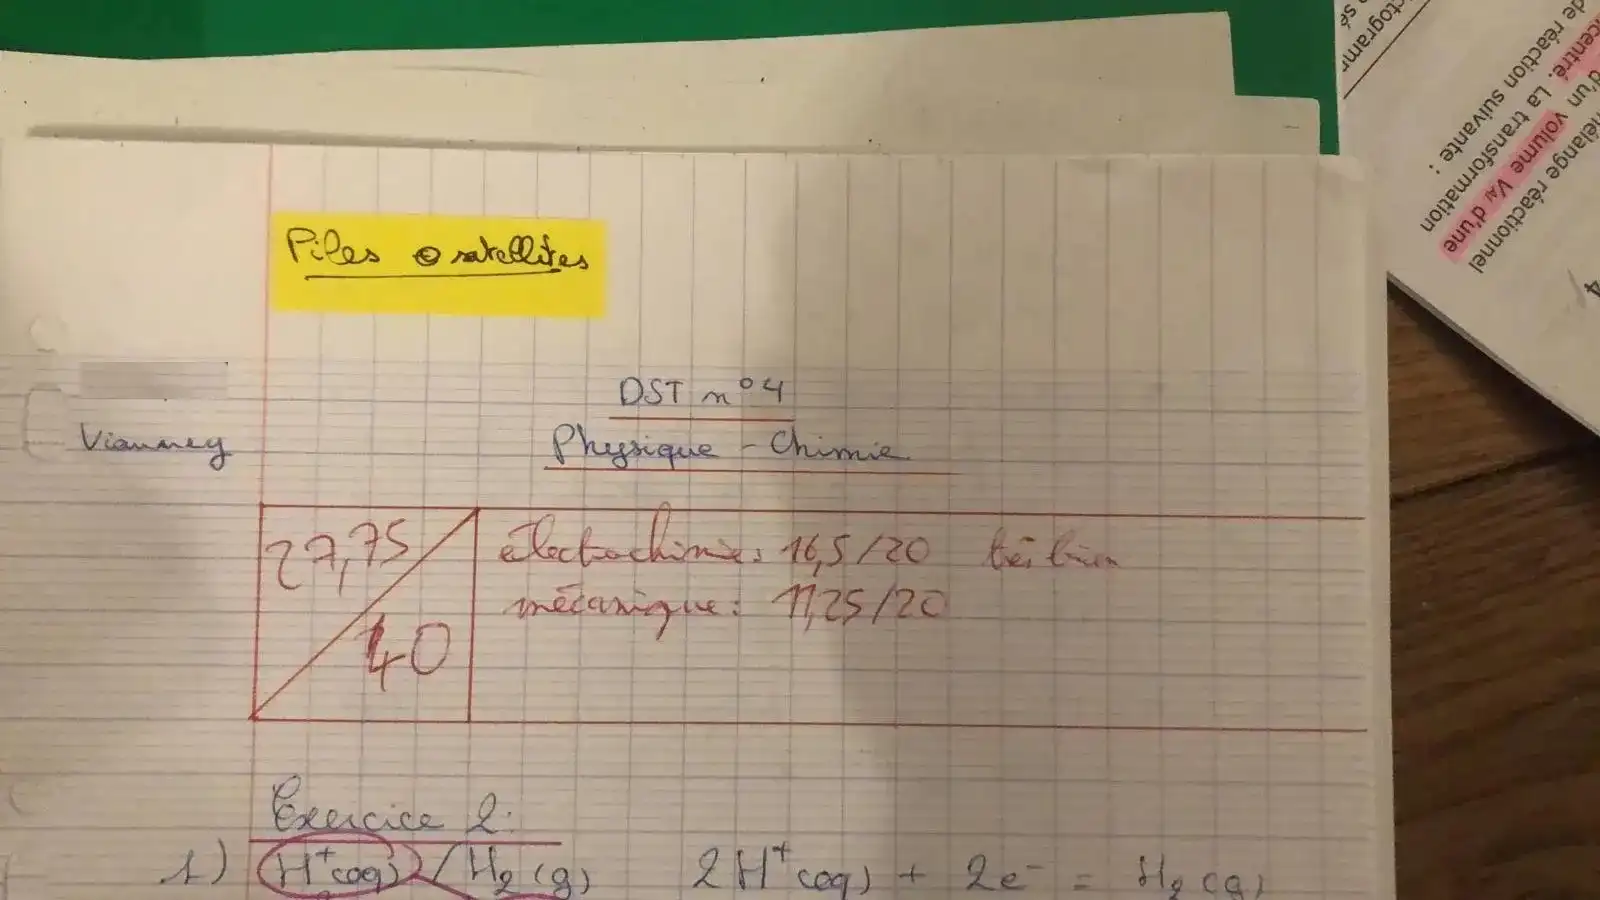 Piles satellites
DST n°4
Vianney
Physique - Chimie
27,75
40
électrochimie: 16,5/20 très bien
mécanique: 11,25/20
Exercice 2:
1) H⁺(aq) / H₂(g) 2H⁺(aq) + 2e⁻ = H₂(g)
mélange réactionnel
d'un volume V_Al d'une
centré. La transformation
de réaction suivante :
4